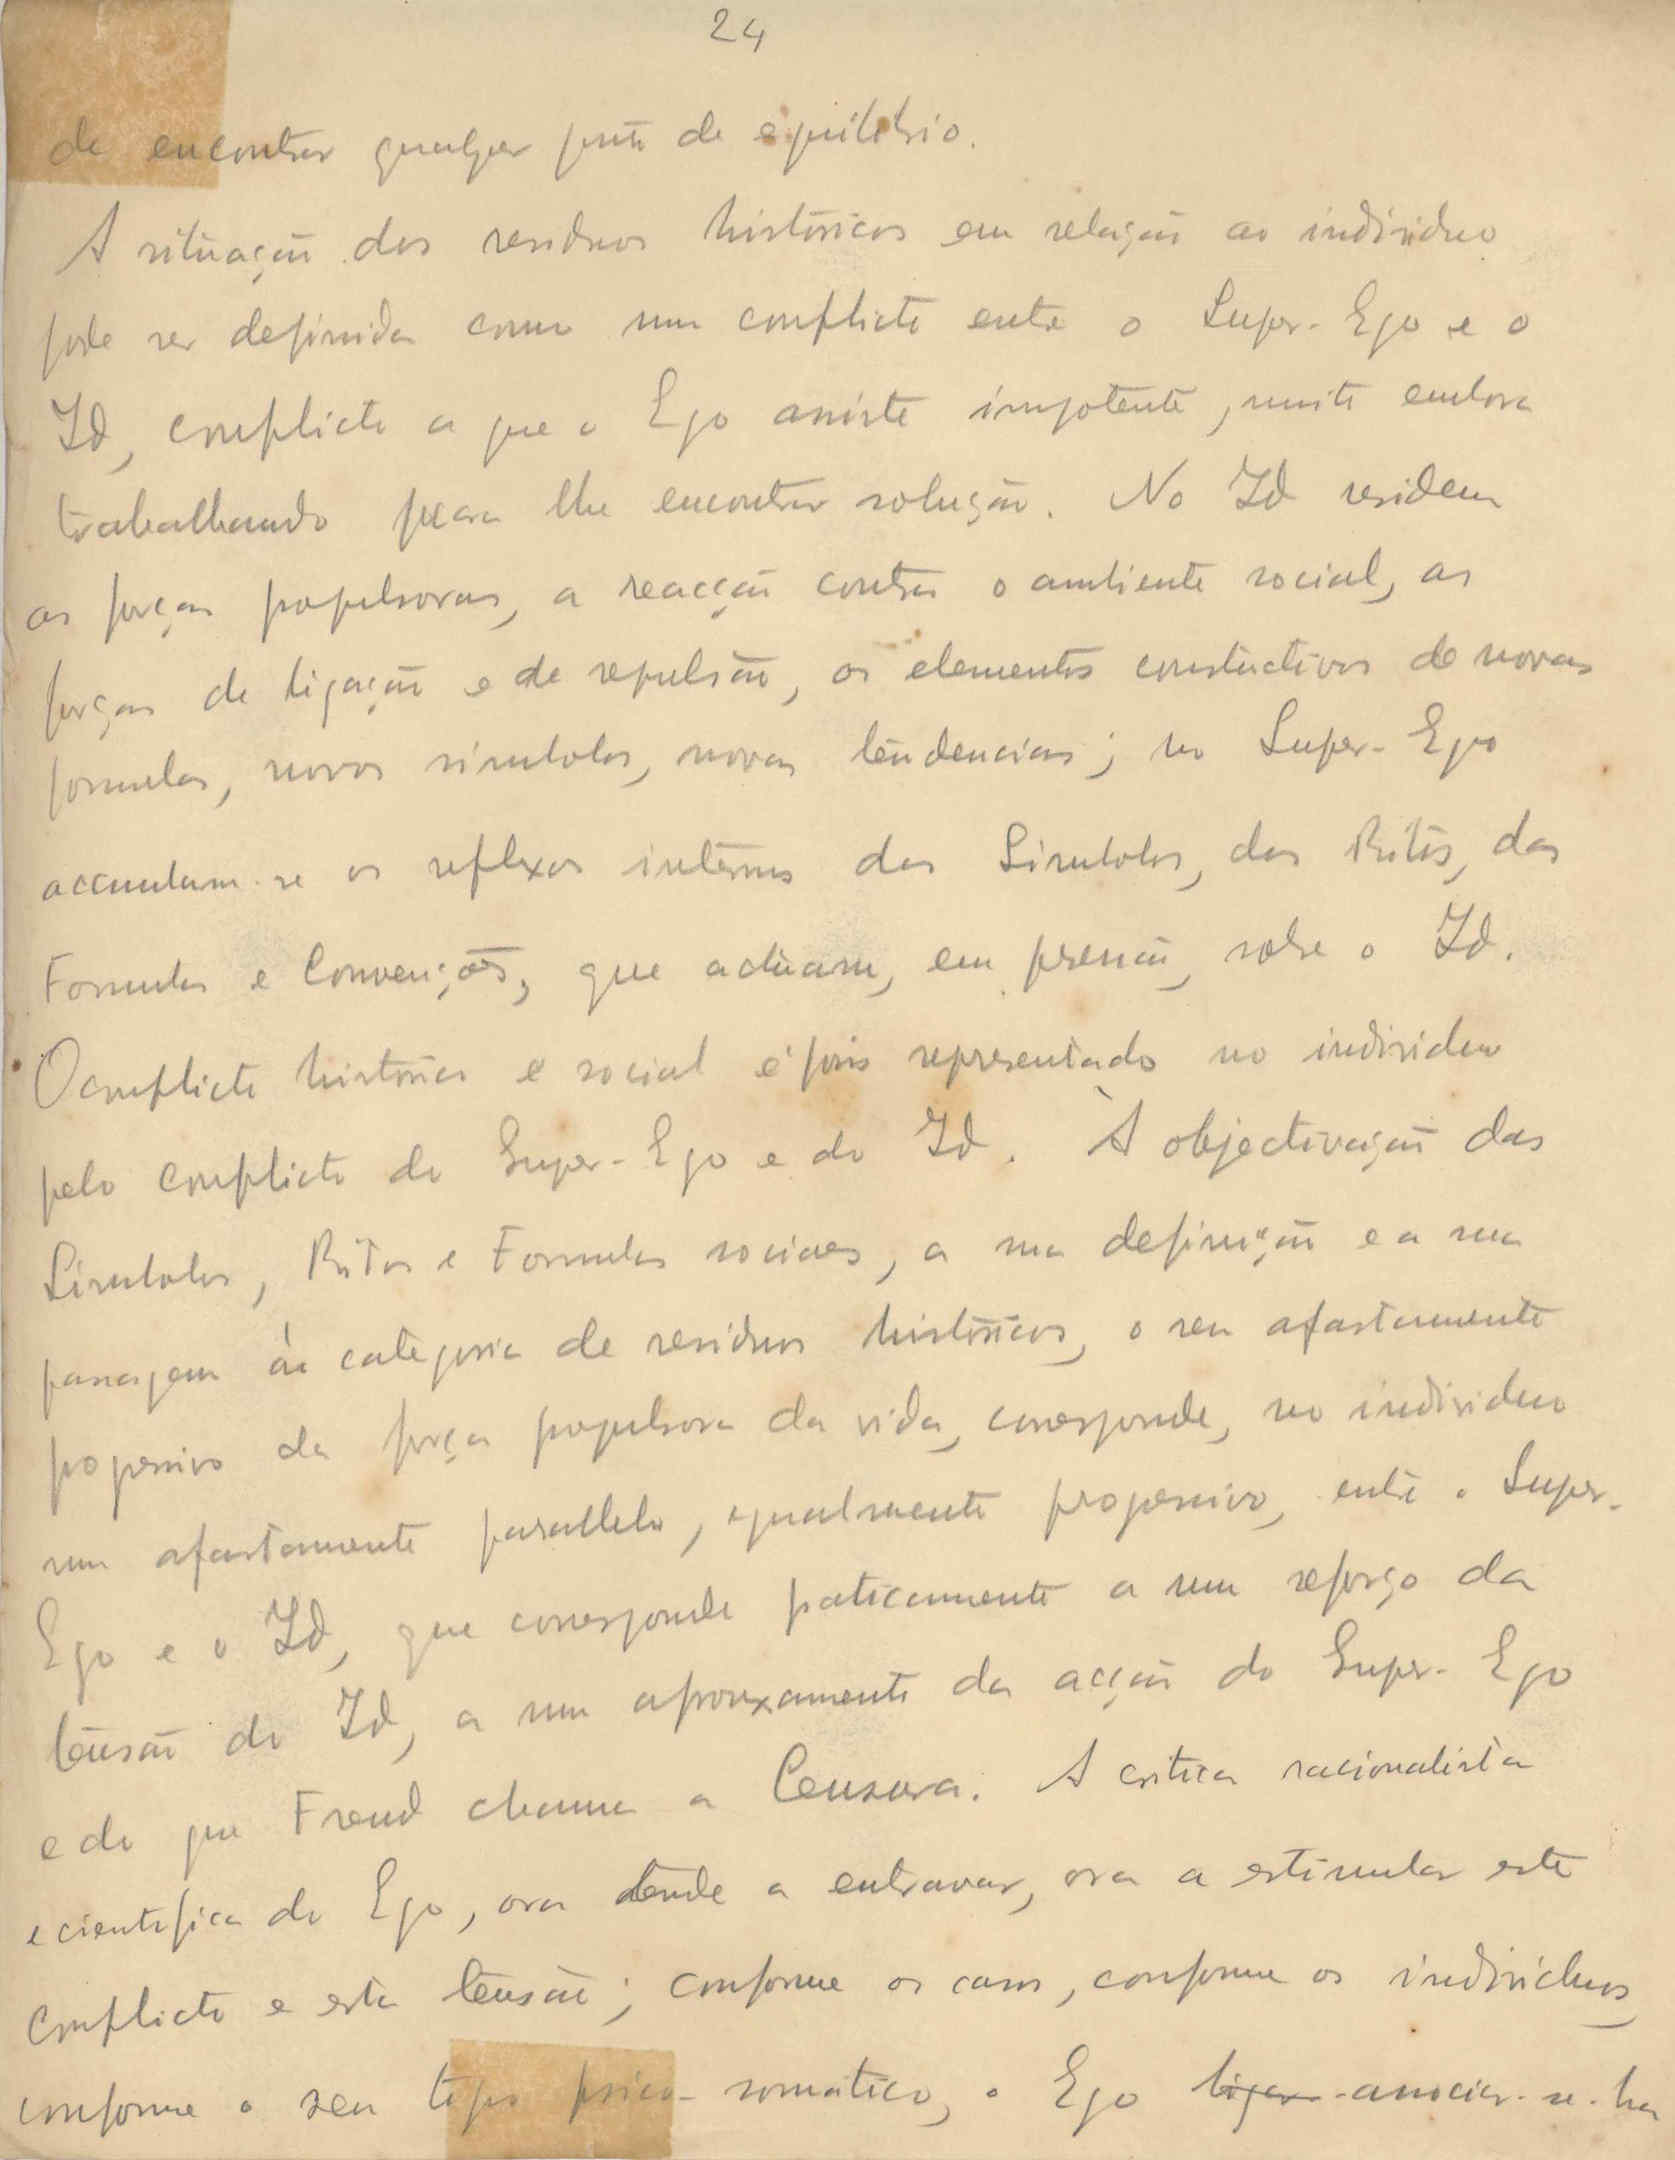 24
de encontrar qualquer ponto de equilibrio.
A situação dos residuos históricos em relação ao individuo
pode ser definida como um conflicto entre o Super-Ego e o
Id, conflicto a que o Ego assiste impotente, muito embora
trabalhando para lhe encontrar solução. No Id residem
as forças propulsoras, a reacção contra o ambiente social, as
forças de ligação e de repulsão, os elementos constructivos de novas
formulas, novos simbolos, novas tendencias; no Super-Ego
accumulam-se os reflexos internos dos Simbolos, dos Ritos, das
Formulas e Convenções, que actuam, em pressão, sobre o Id.
O conflicto historico e social é pois representado no individuo
pelo conflicto do Super-Ego e do Id. À objectivação dos
Simbolos, Ritos e Formulas sociaes, a sua definição e a sua
passagem á categoria de residuos históricos, o seu afastamento
progressivo da força propulsora da vida, corresponde, no individuo
um afastamento parallelo, egualmente progressivo, entre o Super-
Ego e o Id, que corresponde praticamente a um reforço da
tensão do Id, a um afrouxamento da acção do Super-Ego
e do que Freud chama a Censura. A critica racionalista
e cientifica do Ego, ora tende a entravar, ora a estimular este
conflicto e esta tensão; conforme os casos, conforme os individuos,
conforme o seu typo psico-somático, o Ego ligar-associar-se-ha